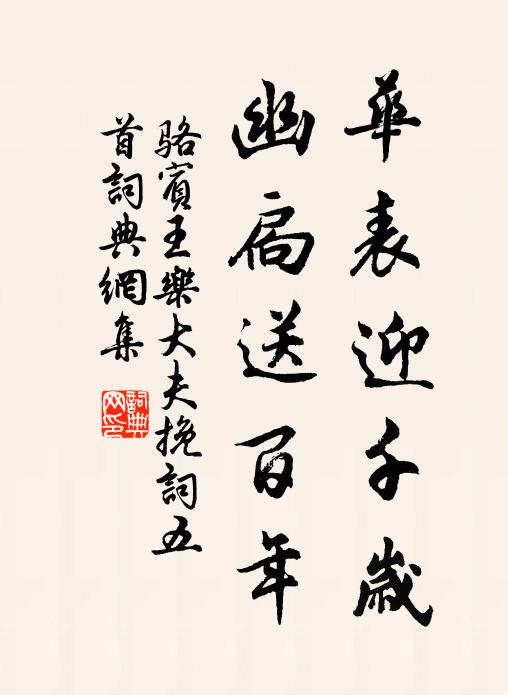 華表迎千歲
幽扃送百年
駱賓王樂大夫挽詞五
首詞典網集
詞典
网印